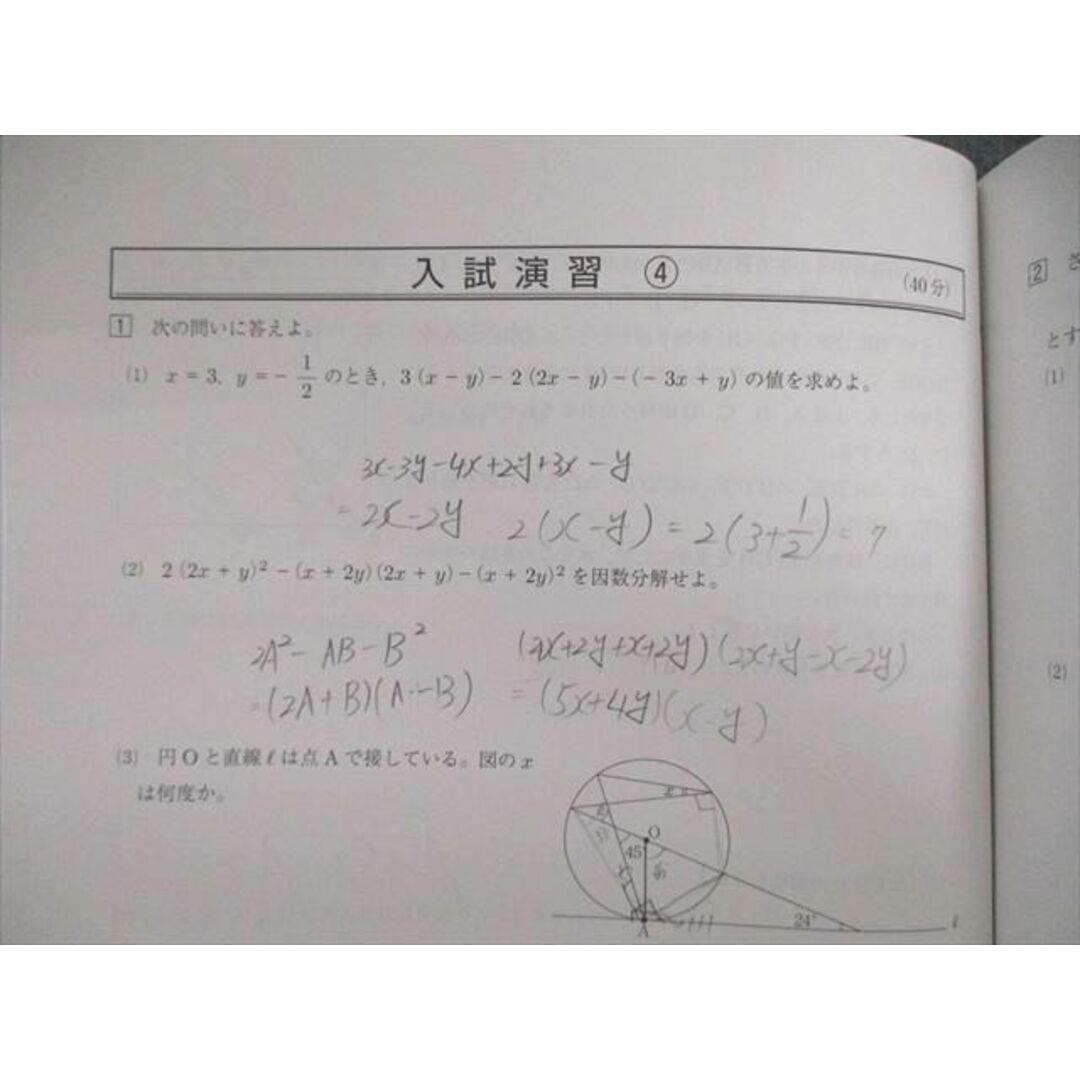 入試演習 ④
(40分)
1 次の問いに答えよ。
(1) x = 3, y = - 1/2 のとき, 3 (x - y) - 2 (2x - y) - (- 3x + y) の値を求めよ。
3x-3y-4x+2y+3x-y
= 2x-2y 2(x-y) = 2(3+1/2) = 7
(2) 2 (2x + y)² - (x + 2y) (2x + y) - (x + 2y)² を因数分解せよ。
2A² - AB - B² (4x+2y+x+2y)(2x+y-x-2y)
= (2A+B)(A-B) = (5x+4y)(x-y)
(3) 円Oと直線ℓは点Aで接している。図のx
は何度か。
x
O
45
24°
A
ℓ
2
とす
(1)
(2)